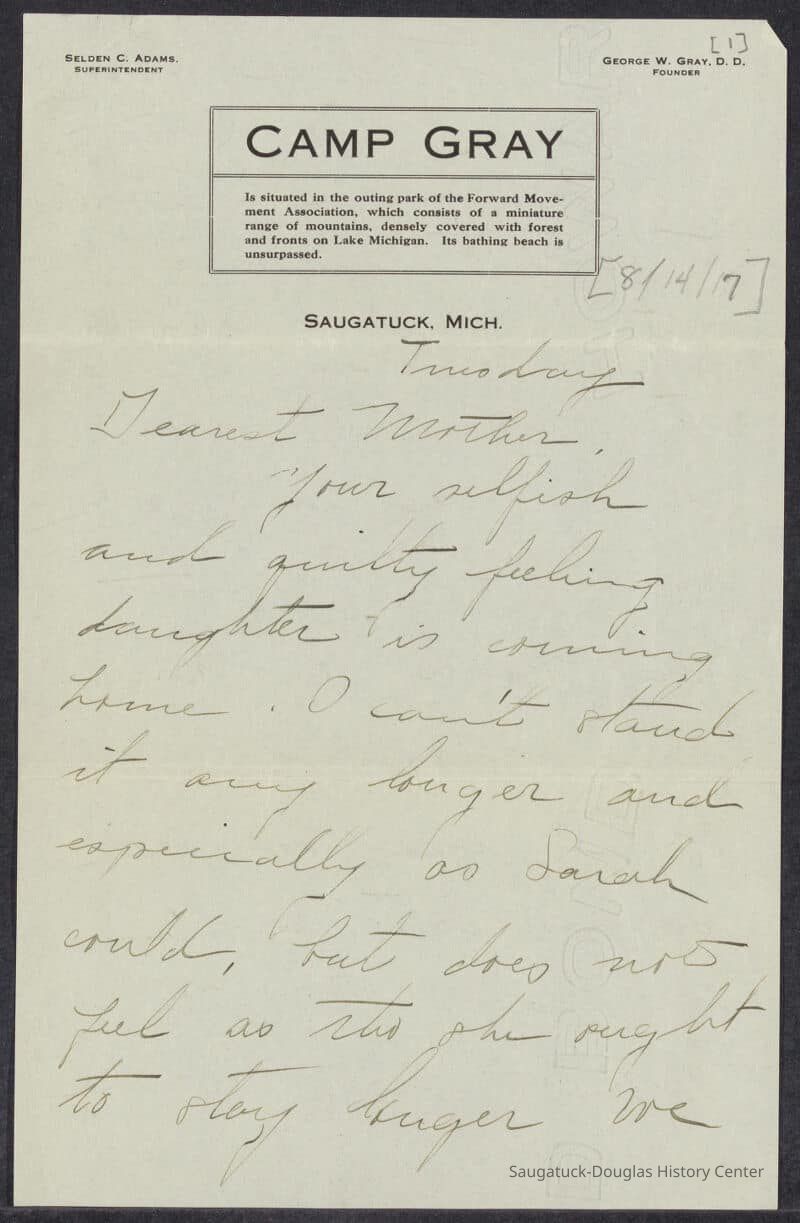 [1]
SELDEN C. ADAMS.
SUPERINTENDENT
GEORGE W. GRAY, D. D.
FOUNDER
CAMP GRAY
Is situated in the outing park of the Forward Move-
ment Association, which consists of a miniature
range of mountains, densely covered with forest
and fronts on Lake Michigan. Its bathing beach is
unsurpassed.
[8/14/17]
SAUGATUCK, MICH.
Tuesday
Dearest Mother,
Your selfish
and guilty feeling
daughter is coming
home. I can't stand
it any longer and
especially as Sarah
could, but does not
feel as tho she ought
to stay longer We
Saugatuck-Douglas History Center